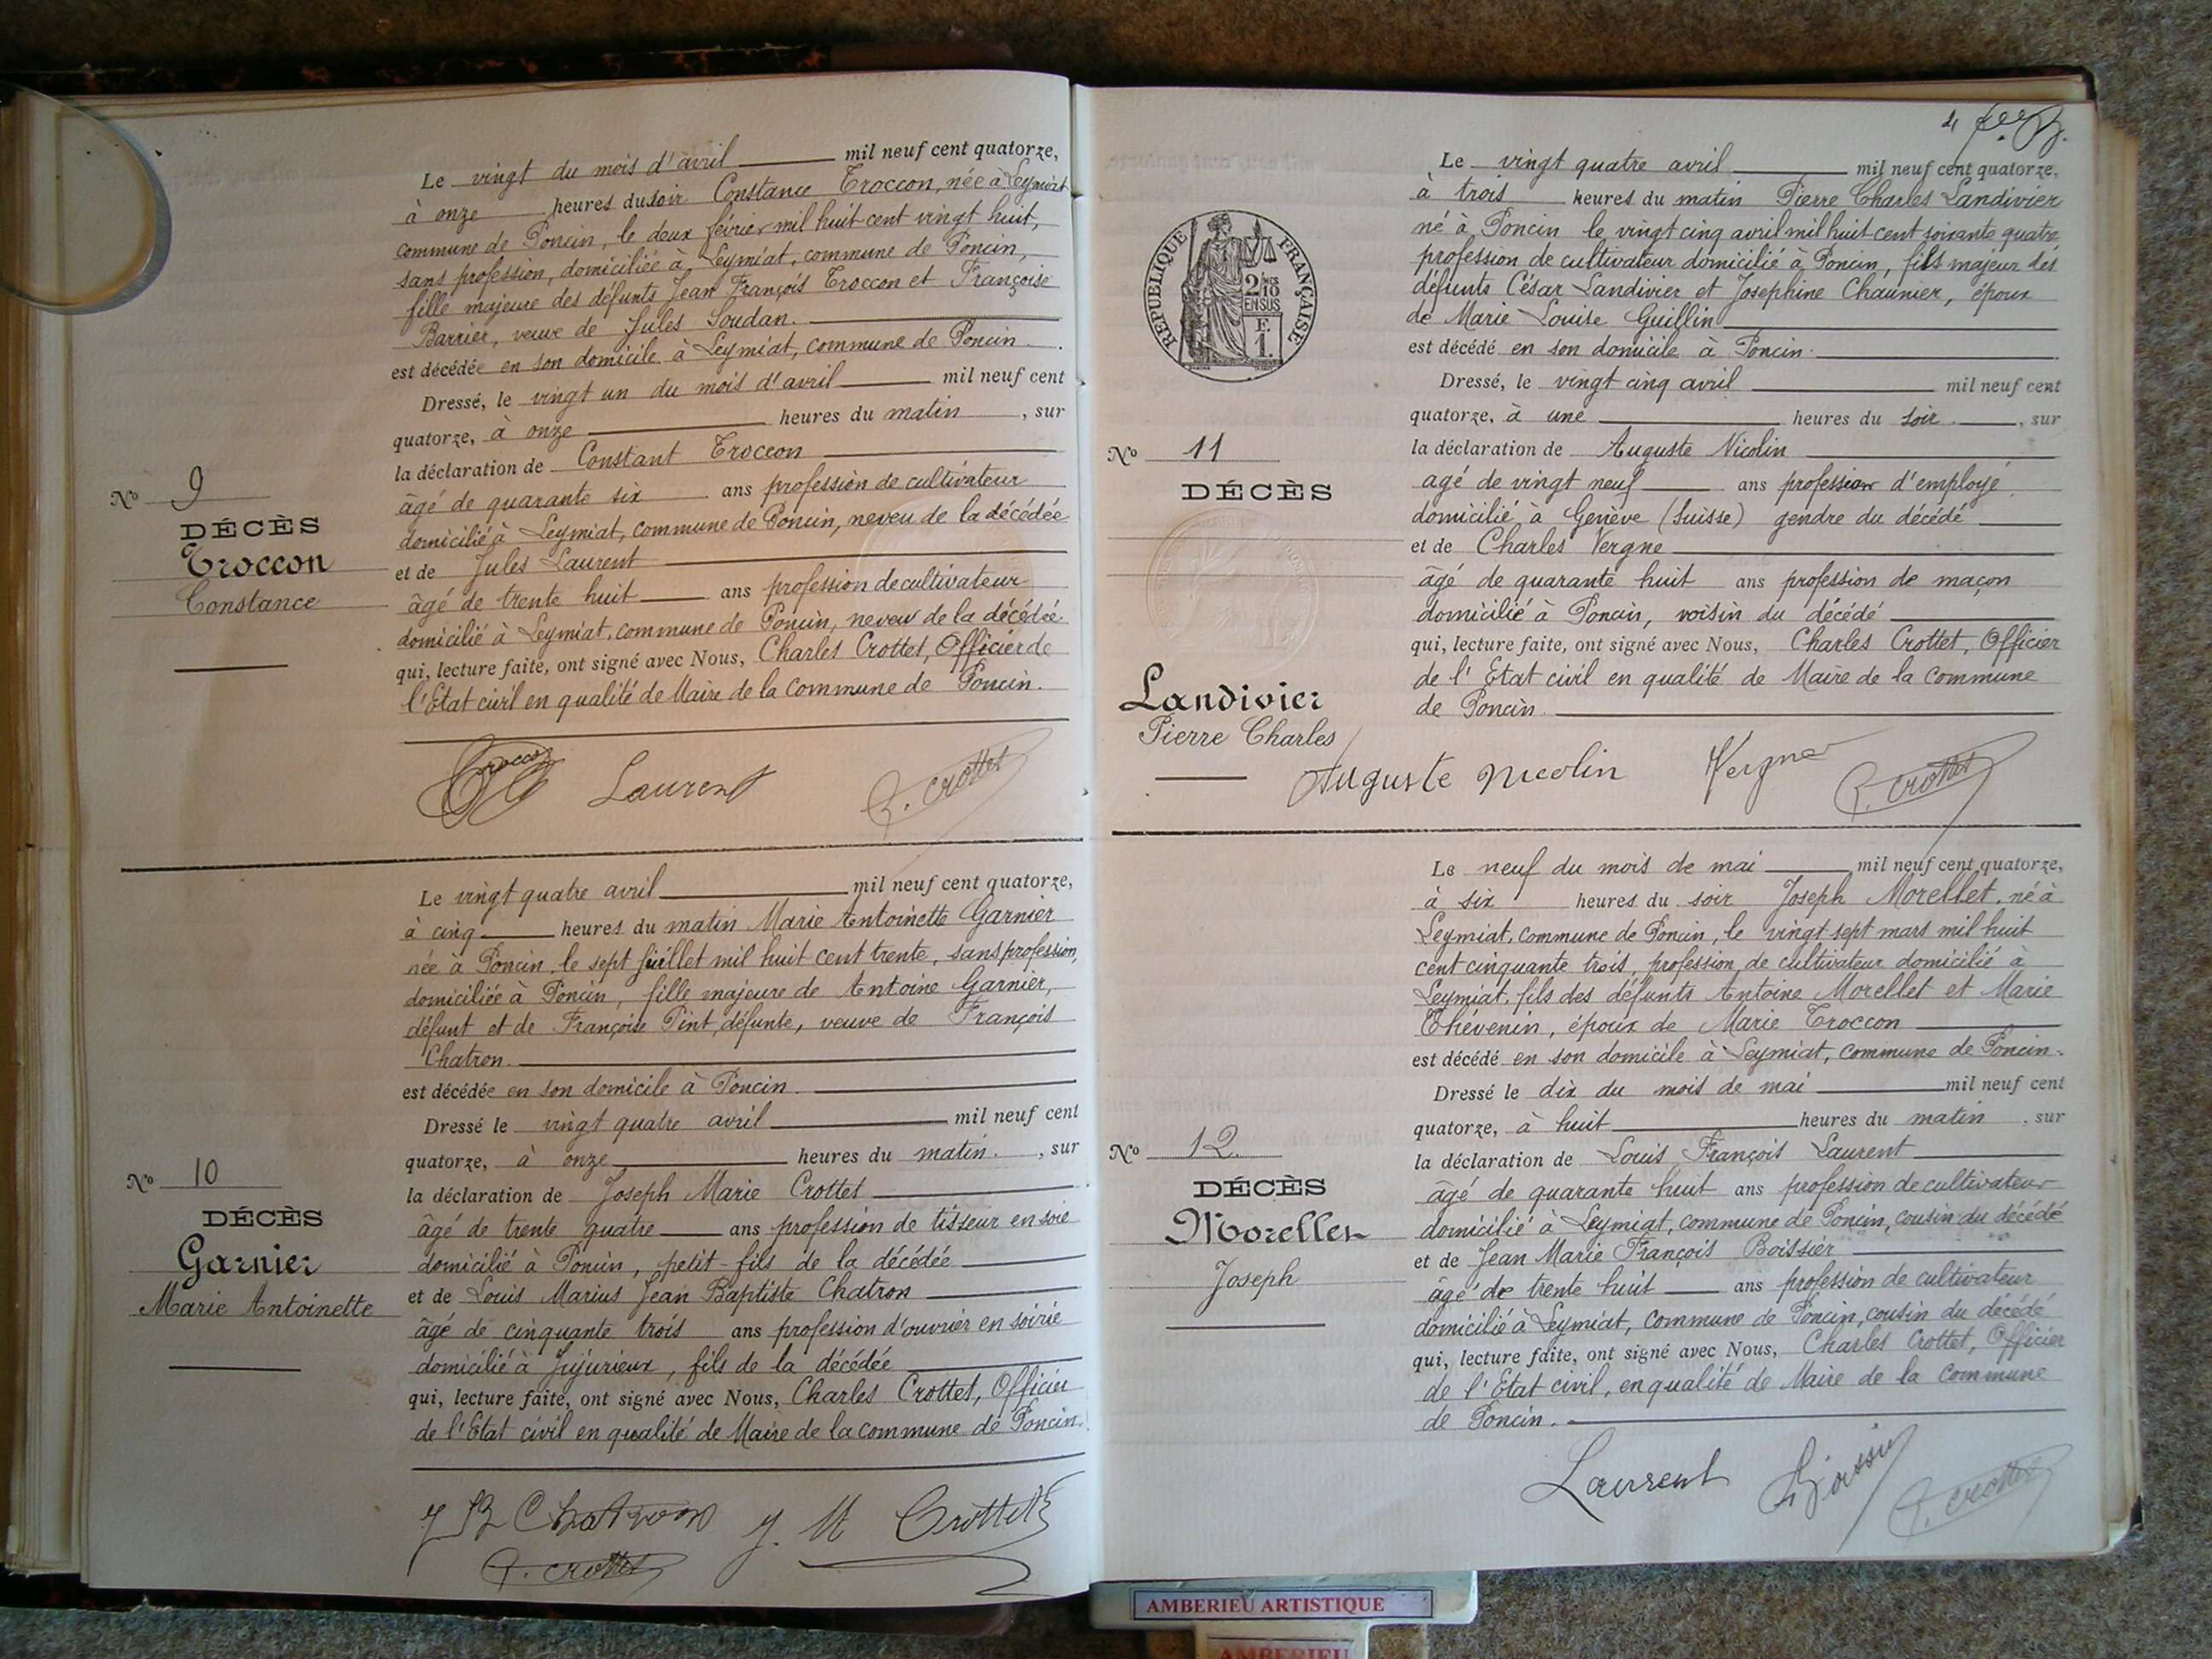 Le vingt du mois d'avril mil neuf cent quatorze,
à onze heures du soir Constance Troccon, née à Leymiat
commune de Poncin, le deux février mil huit cent vingt huit,
sans profession, domiciliée à Leymiat, commune de Poncin,
fille majeure des défunts Jean François Troccon et Françoise
Barrier, veuve de Jules Soudan.
est décédée en son domicile à Leymiat, commune de Poncin.
Dressé, le vingt un du mois d'avril mil neuf cent
quatorze, à onze heures du matin, sur
la déclaration de Constant Troccon
âgé de quarante six ans profession de cultivateur
domicilié à Leymiat, commune de Poncin, neveu de la décédée
et de Jules Laurent
âgé de trente huit ans profession de cultivateur
domicilié à Leymiat, commune de Poncin, neveu de la décédée
qui, lecture faite, ont signé avec Nous, Charles Crottet, Officier de
l'Etat civil en qualité de Maire de la commune de Poncin.
No 9
DÉCÈS
Troccon
Constance
Troccon Laurent C. Crottet
Le vingt quatre avril mil neuf cent quatorze,
à cinq heures du matin Marie Antoinette Garnier
née à Poncin, le sept juillet mil huit cent trente, sans profession,
domiciliée à Poncin, fille majeure de Antoine Garnier,
défunt et de Françoise Pint, défunte, veuve de François
Chatron.
est décédée en son domicile à Poncin.
Dressé le vingt quatre avril mil neuf cent
quatorze, à onze heures du matin., sur
la déclaration de Joseph Marie Crottet
âgé de trente quatre ans profession de tisseur en soie
domicilié à Poncin, petit-fils de la décédée
et de Louis Marius Jean Baptiste Chatron
âgé de cinquante trois ans profession d'ouvrier en soirie
domicilié à Jujurieux, fils de la décédée
qui, lecture faite, ont signé avec Nous, Charles Crottet, Officier
de l'Etat civil en qualité de Maire de la commune de Poncin.
No 10
DÉCÈS
Garnier
Marie Antoinette
J B Chatron J. M Crottet
C. Crottet
4
Le vingt quatre avril mil neuf cent quatorze,
à trois heures du matin Pierre Charles Landivier
né à Poncin le vingt cinq avril mil huit cent soixante quatre
profession de cultivateur domicilié à Poncin, fils majeur des
défunts César Landivier et Josephine Chaunier, époux
de Marie Louise Guillin
est décédé en son domicile à Poncin.
Dressé, le vingt cinq avril mil neuf cent
quatorze, à une heures du soir., sur
la déclaration de Auguste Nicolin
agé de vingt neuf ans profession d'employé
domicilié à Genève (Suisse) gendre du décédé
et de Charles Vergne
âgé de quarante huit ans profession de maçon
domicilié à Poncin, voisin du décédé
qui, lecture faite, ont signé avec Nous, Charles Crottet, Officier
de l'Etat civil en qualité de Maire de la commune
de Poncin.
REPUBLIQUE FRANÇAISE
2/10
EN SUS
F.
1.
No 11
DÉCÈS
Landivier
Pierre Charles
Auguste Nicolin Vergne C. Crottet
Le neuf du mois de mai mil neuf cent quatorze,
à six heures du soir Joseph Morellet, né à
Leymiat, commune de Poncin, le vingt sept mars mil huit
cent cinquante trois, profession de cultivateur domicilié à
Leymiat, fils des défunts Antoine Morellet et Marie
Thévenin, époux de Marie Troccon
est décédé en son domicile à Leymiat, commune de Poncin.
Dressé le dix du mois de mai mil neuf cent
quatorze, à huit heures du matin, sur
la déclaration de Louis François Laurent
âgé de quarante huit ans profession de cultivateur
domicilié à Leymiat, commune de Poncin, cousin du décédé
et de Jean Marie François Boissier
âgé de trente huit ans profession de cultivateur
domicilié à Leymiat, commune de Poncin, cousin du décédé
qui, lecture faite, ont signé avec Nous, Charles Crottet, Officier
de l'Etat civil, en qualité de Maire de la commune
de Poncin.
No 12
DÉCÈS
Morellet
Joseph
Laurent C. Crottet
AMBERIEU ARTISTIQUE
AMBERIEU